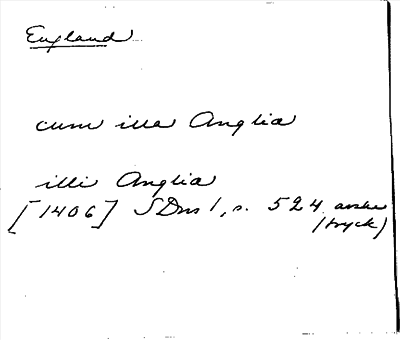 England
cum illa Anglia
illi Anglia
[1406] SDns 1, s. 524 avskr
(tryck)